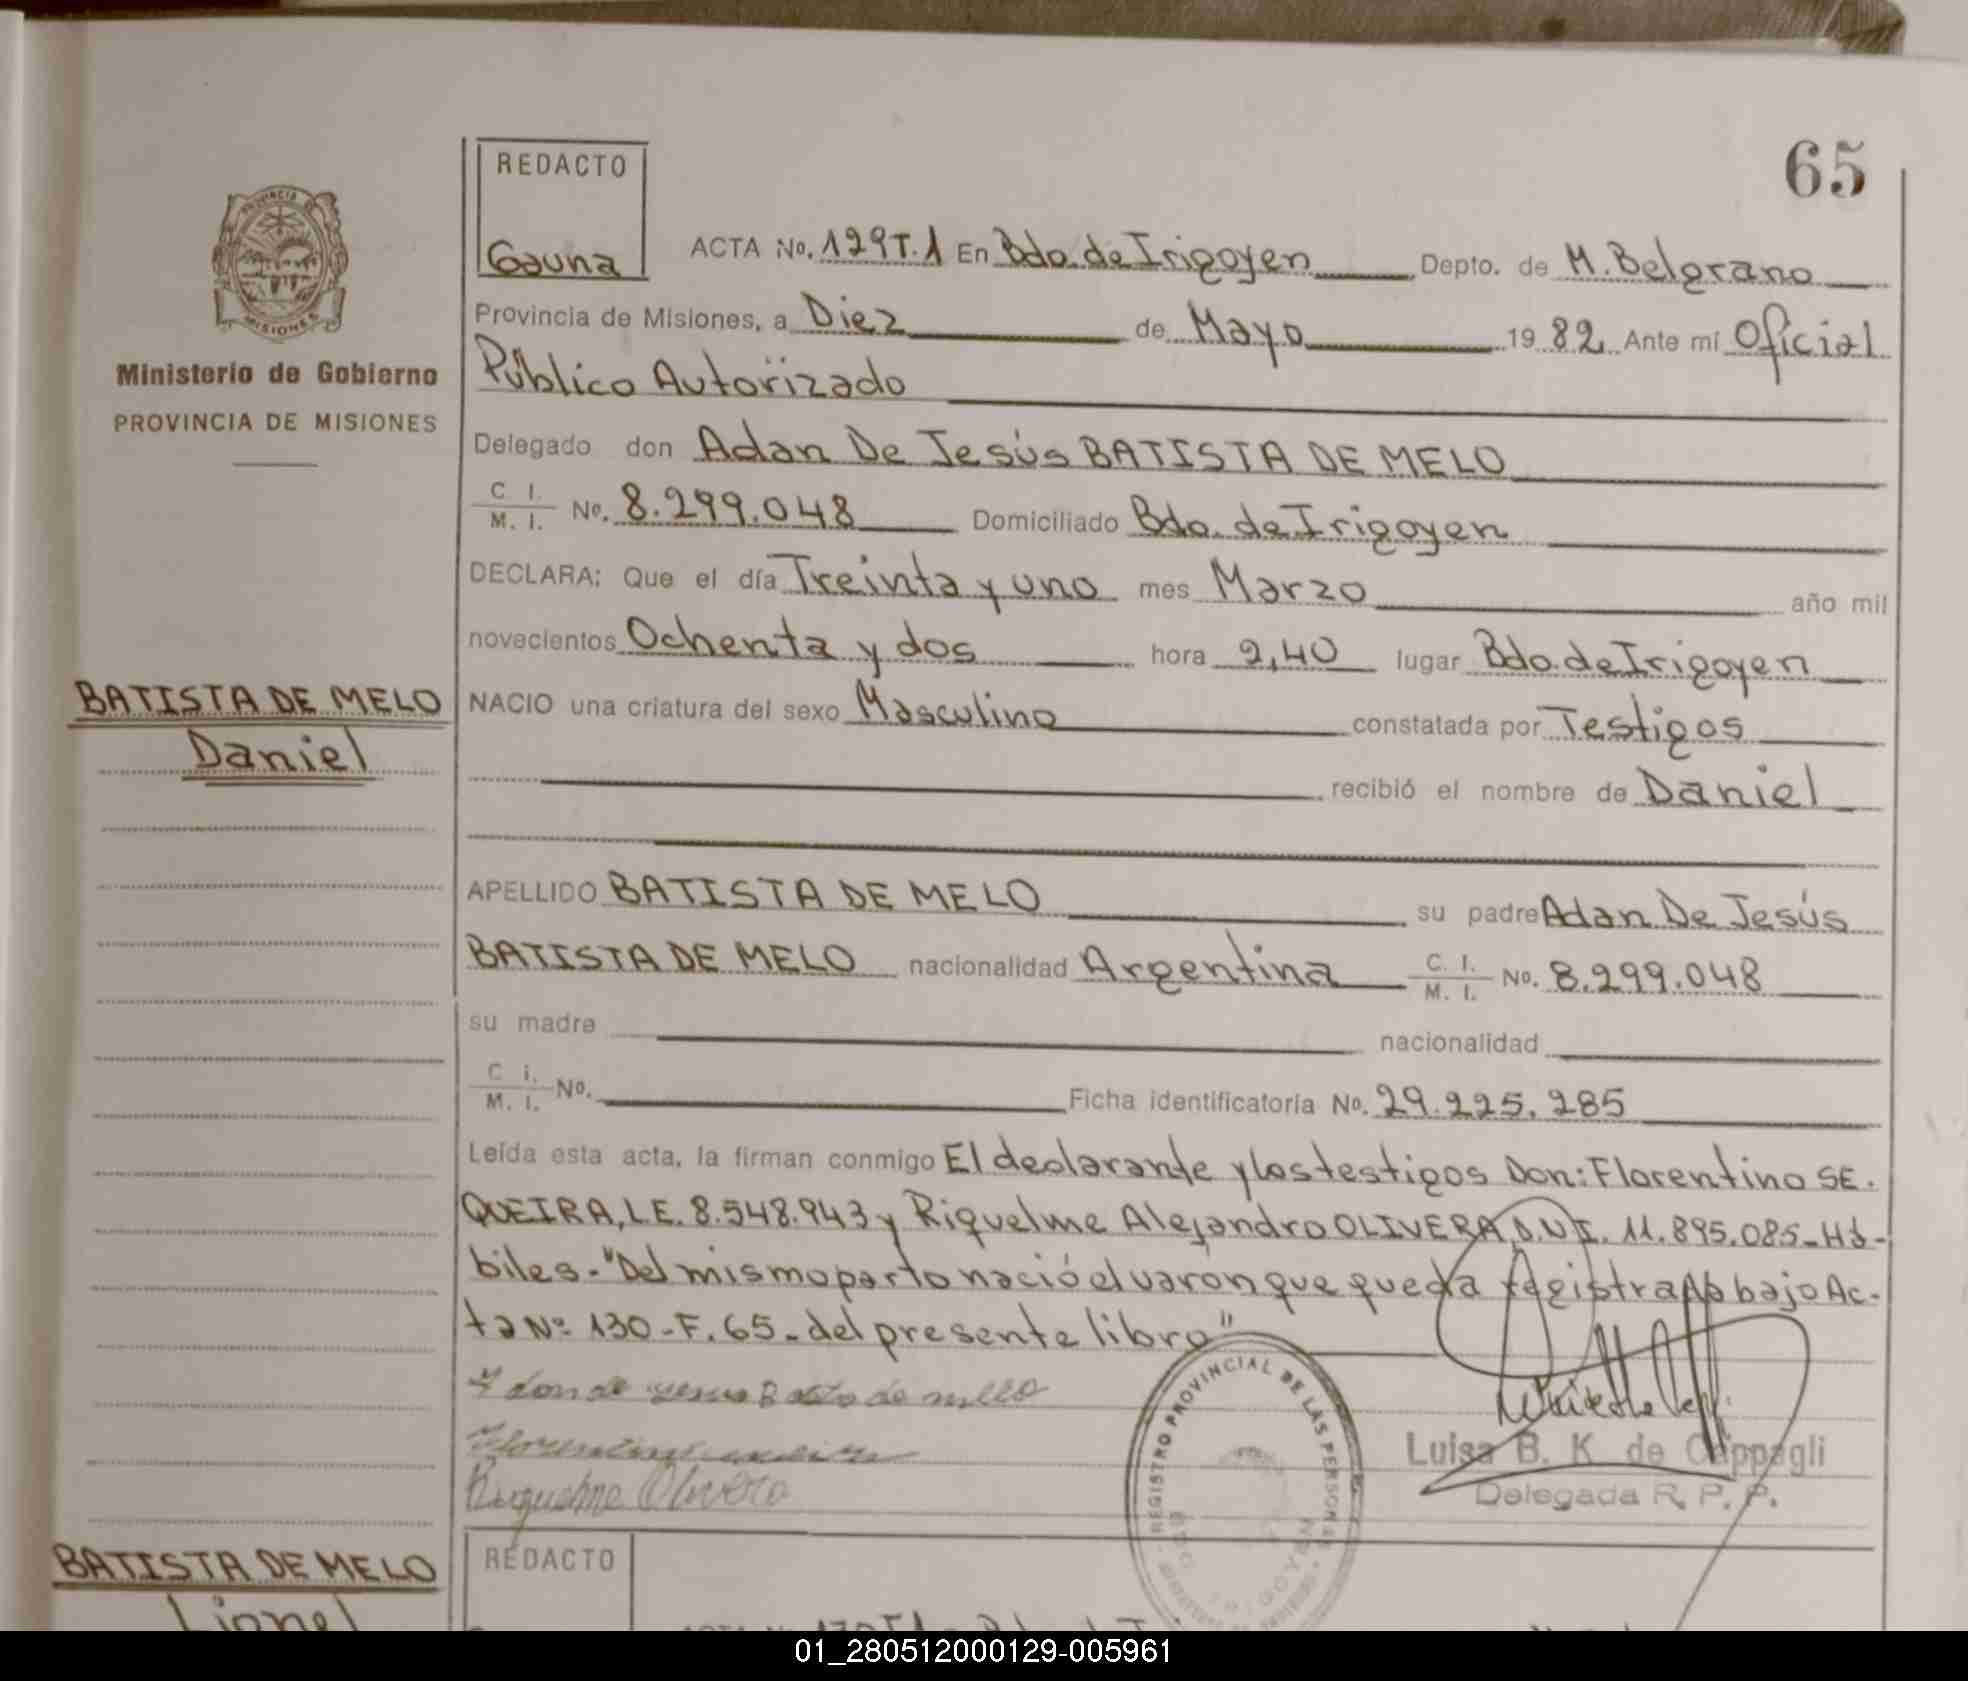 65
REDACTO
Gauna
ACTA No. 129 T.1 En Bdo. de Irigoyen Depto. de M. Belgrano
Provincia de Misiones, a Diez de Mayo 1982 Ante mí Oficial
Público Autorizado
Delegado don Adan De Jesús BATISTA DE MELO
C. I.
M. I. No. 8.299.048 Domiciliado Bdo. de Irigoyen
DECLARA: Que el día Treinta y uno mes Marzo año mil
novecientos Ochenta y dos hora 2,40 lugar Bdo. de Irigoyen
NACIO una criatura del sexo Masculino constatada por Testigos
recibió el nombre de Daniel
APELLIDO BATISTA DE MELO su padre Adan De Jesús
BATISTA DE MELO nacionalidad Argentina C. I. M. I. No. 8.299.048
su madre nacionalidad
C. I.
M. I. No. Ficha identificatoria No. 29.225.285
Leída esta acta, la firman conmigo El declarante y los testigos Don: Florentino SE-
QUEIRA, L.E. 8.548.943 y Riquelme Alejandro OLIVERA, D.N.I. 11.895.085-Há-
biles-"Del mismo parto nació el varon que queda registrado bajo Ac-
ta Nº 130-F.65-del presente libro"
Riquelme Olivera
REGISTRO PROVINCIAL DE LAS PERSONAS
Luisa B. K. de Cappagli
Delegada R. P. P.
PROVINCIA DE
MISIONES
Ministerio de Gobierno
PROVINCIA DE MISIONES
BATISTA DE MELO
Daniel
BATISTA DE MELO
Lionel
REDACTO
01_280512000129-005961